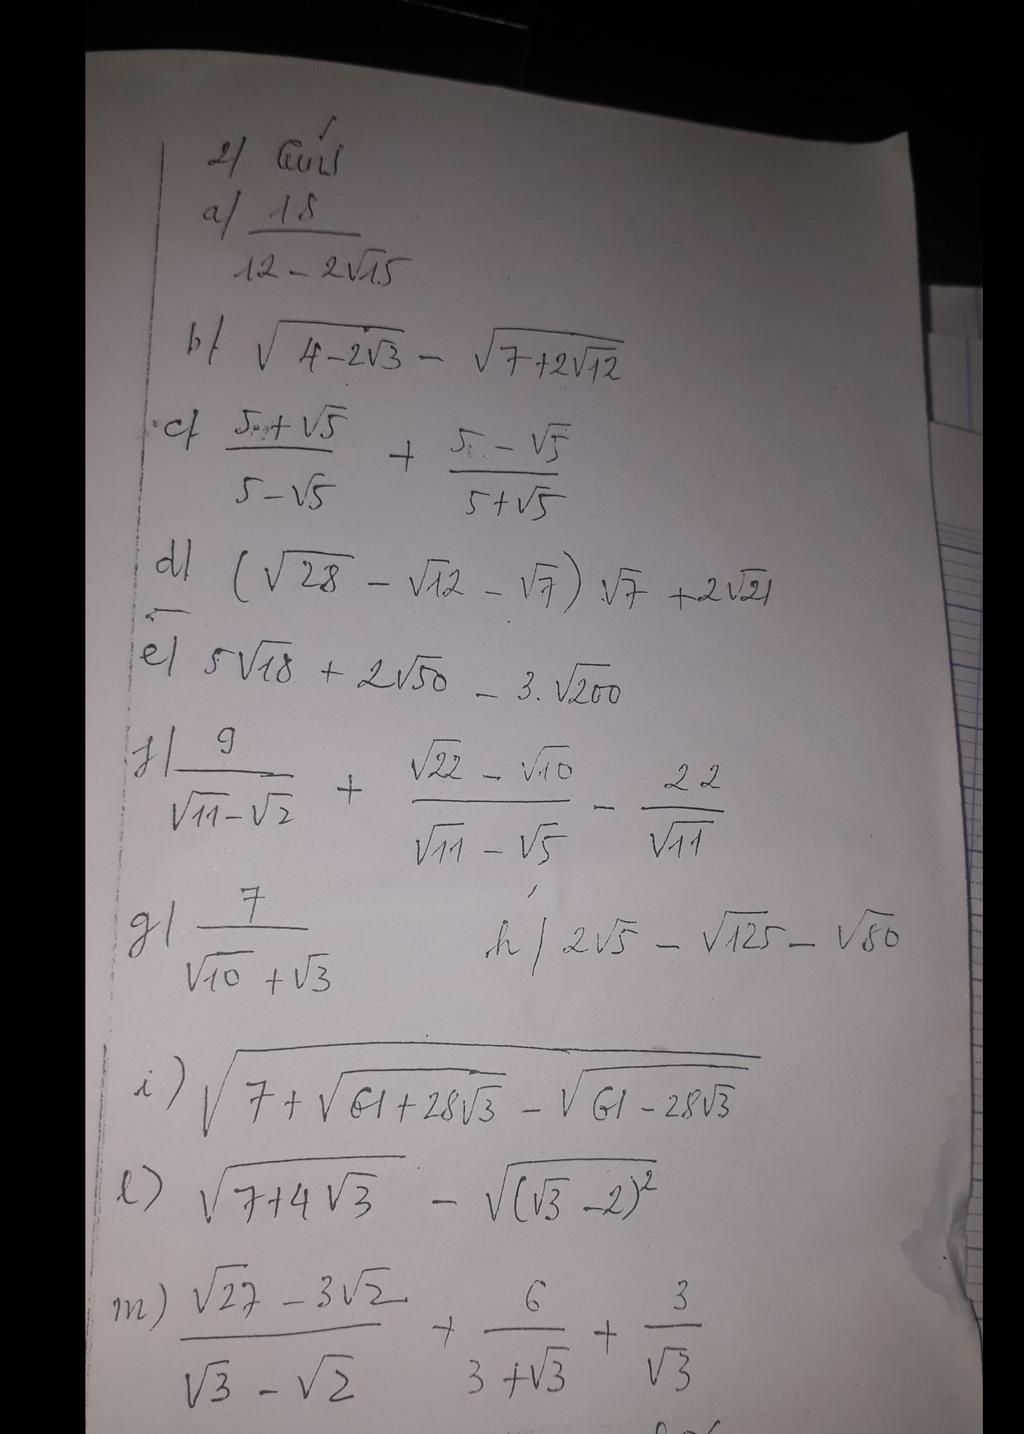 2/
a/ 18 / (12 - 2√15)
b/ √(4-2√3) - √(7+2√12)
c/ (5+√5)/(5-√5) + (5-√5)/(5+√5)
d/ (√28 - √12 - √7) √7 + 2√21
e/ 5√18 + 2√50 - 3.√200
f/ 9/(√11-√2) + (√22 - √10)/(√11 - √5) - 22/√11
g/ 7/(√10 + √3) h/ 2√5 - √125 - √80
i) √(7+√(61+28√3) - √(61-28√3))
l) √(7+4√3) - √((√3-2)²)
m) (√27 - 3√2)/(√3 - √2) + 6/(3+√3) + 3/√3